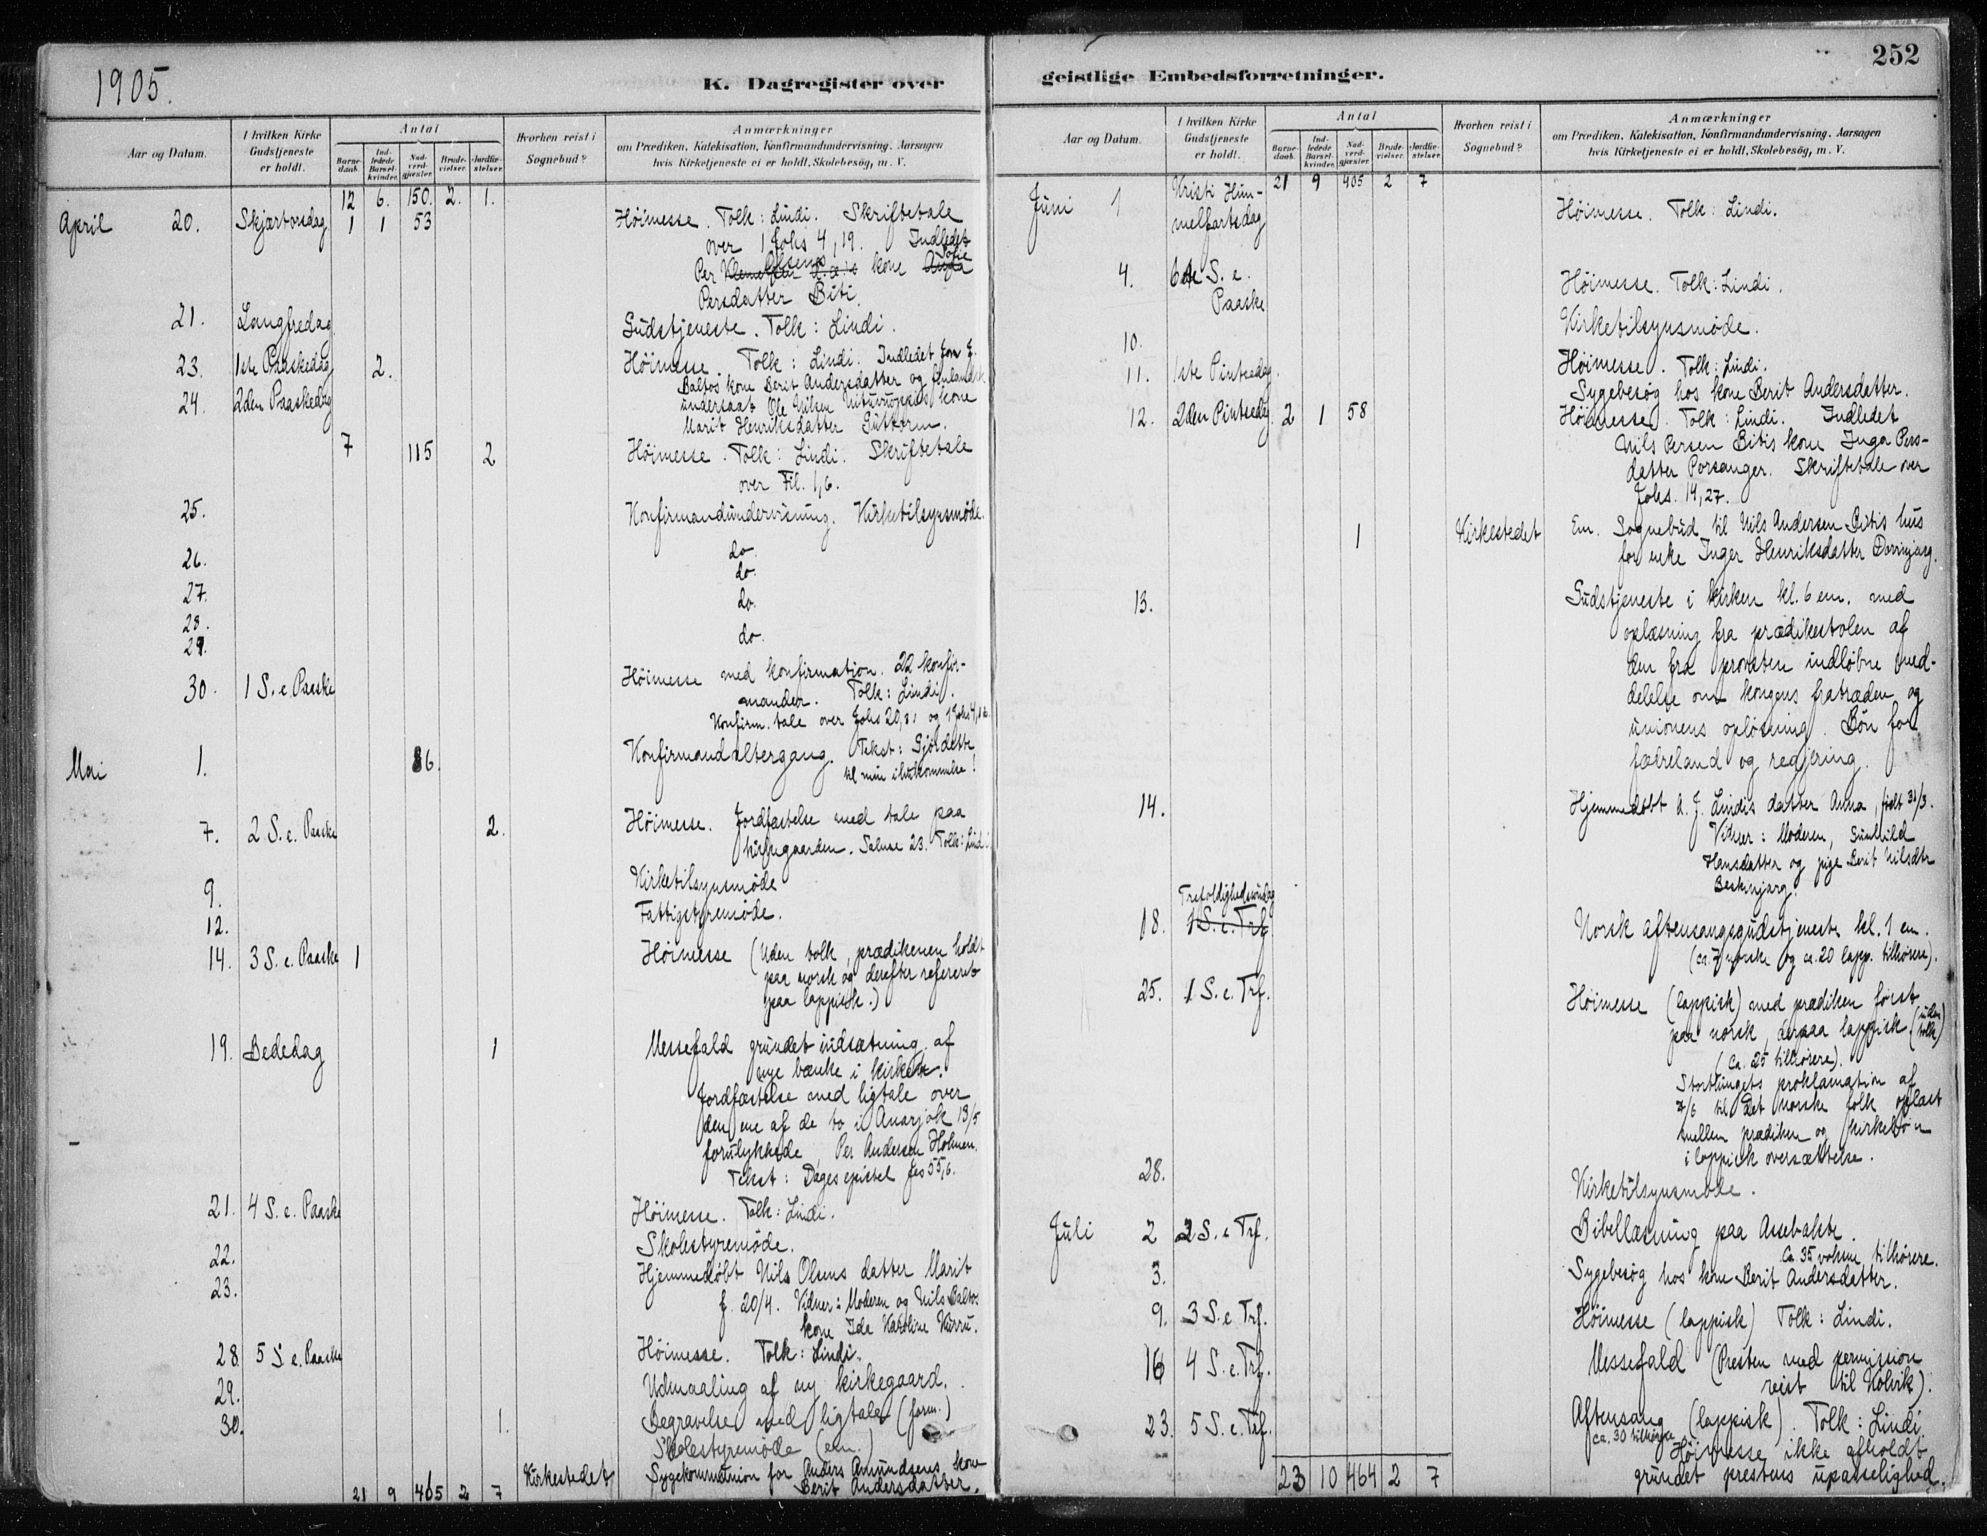 1905.
K. Dagregister over
Aar og Datum.
I hvilken Kirke
Gudstjeneste
er holdt.
Antal
Barne-
daab.
Ind-
ledede
Barsel-
kvinder.
Nad-
verd-
gjæster.
Brude-
vielser.
Jordfæ-
stelser.
Hvorhen reist i
Sognebud?
Anmærkninger
om Prædiken, Katekisation, Konfirmandundervisning, Aarsagen
hvis Kirketjeneste ei er holdt, Skolebesög, m. V.
12 6. 150. 2. 1.
April 20. Skjærtorsdag 1 1 53 Höimesse. Tolk: Lindi. Skriftetale
over 1 Johs 4, 19. Indledet
Olsens Sofie
Per kone
Persdatter Biti.
21. Langfredag Gudstjeneste. Tolk: Lindi.
23. 1ste Paaskedag 2. Höimesse. Tolk: Lindi. Indledet Jon E.
Baltos kone Berit Andersdatter og finlandsk
24. 2den Paaskedag undersaat Ole Nilsen kone
Marit Henriksdatter Guttorm.
7 115 2 Höimesse. Tolk: Lindi. Skriftetale
over Fil. 1,6.
25. Konfirmandundervisning. Kirketilsynsmöde.
26. do.
do.
27. do.
28.
29. do.
30. 1 S. e. Paaske Höimesse med konfirmation. 22 konfir-
mander. Tolk: Lindi.
Konfirm. tale over Johs 20,31 og 1 Johs 4,16.
Mai 1. 86. Konfirmandaltergang. Tekst: Gjör dette
til min ihukommelse!
7. 2 S. e. Paaske 2. Höimesse. Jordfæstelse med tale paa
kirkegaarden. Salme 23. Tolk: Lindi.
9. Kirketilsynsmöde
12. Fattigstyremöde.
14. 3 S. e. Paaske 1 Höimesse (Uden tolk, prædikenen holdt
paa norsk og derefter refereret
paa lappisk.)
19. Bededag 1 Messefald grundet indsætning af
nye bænke i kirken.
Jordfæstelse med ligtale over
den ene af de to i Anarjok 13/5
forulykkede, Per Andersen Holmen.
Tekst: Dagens epistel Jes 55,6.
21. 4 S. e. Paaske Höimesse. Tolk: Lindi.
22. Skolestyremöde.
23. Hjemmedöbt Nils Olsens datter Marit
f. 20/4. Vidner: Moderen og Nils Baltos
kone Ide Karoline Kirru.
28 5 S. e. Paaske Höimesse. Tolk: Lindi.
29. Udmaaling af ny kirkegaard.
30. 1. Begravelse med ligtale (form.)
Skolestyremöde (em.)
Kirkestedet Sygekommunion for Anders Amundsens kone
Berit Andersdatter.
21 9 405 2 7
252
geistlige Embedsforretninger.
Aar og Datum.
I hvilken Kirke
Gudstjeneste
er holdt.
Antal
Barne-
daab.
Ind-
ledede
Barsel-
kvinder.
Nad-
verd-
gjæster.
Brude-
vielser.
Jordfæ-
stelser.
Hvorhen reist i
Sognebud?
Anmærkninger
om Prædiken, Katekisation, Konfirmandundervisning, Aarsagen
hvis Kirketjeneste ei er holdt, Skolebesög, m. V.
21 9 405 2 7
Juni 1 Kristi Him-
melfartsdag Höimesse. Tolk: Lindi.
4. 6te S. e.
Paaske Höimesse. Tolk: Lindi.
10. Kirketilsynsmöde.
11. 1ste Pintsedag. Höimesse. Tolk: Lindi.
Sygebesög hos kone Berit Andersdatter.
12. 2den Pintsedag 2 1 58 Höimesse. Tolk: Lindi. Indledet
Nils Persen Bitis kone Inga Pers-
datter Porsanger. Skriftetale over
Johs. 14, 27.
1 Kirkestedet Em. Sognebud til Nils Andersen Bitis hus
for enke Inger Henriksdatter
13. Gudstjeneste i kirken kl. 6 em. med
oplæsning fra prædikestolen af
den fra provsten indløbne med-
delelse om kongens fratræden og
unionens oplösning. Bön for
fædreland og regjering.
14. Hjemmedöbt A. J. Lindis datter Anna, födt 31/3.
Vidner: Moderen, Gunhild
Hansdatter og pige Berit Nilsdtr
18. Trefoldighedssöndag
1 S. e. Trf. Norsk aftensangsgudstjeneste kl. 1 em.
(ca. 7 norske og ca. 20 lapp. tilhörere).
25. 1 S. e. Trf. Höimesse (lappisk) med prædiken först
paa norsk, derpaa lappisk (uden
tolk)
(ca. 25 tilhörere).
Storthingets proklamation af
7/6 til det norske folk oplæst
mellem prædiken og kirkebön
i lappisk oversættelse.
28. Kirketilsynsmöde.
Juli 2 2 S. e. Trf. Bibellæsning paa Assebakte.
Ca 35 voksne tilhörere.
3. Sygebesög hos kone Berit Andersdatter.
9. 3 S. e Trf. Höimesse (lappisk) Tolk: Lindi.
16 4 S. e. Trf. Messefald (Presten med permission
reist til Kolvik).
23. 5 S. e. Trf. Aftensang (lappisk). Tolk: Lindi.
ca. 30 tilhörere
Höimesse ikke afholdt
grundet prestens upasselighed.
23 10 464 2 7